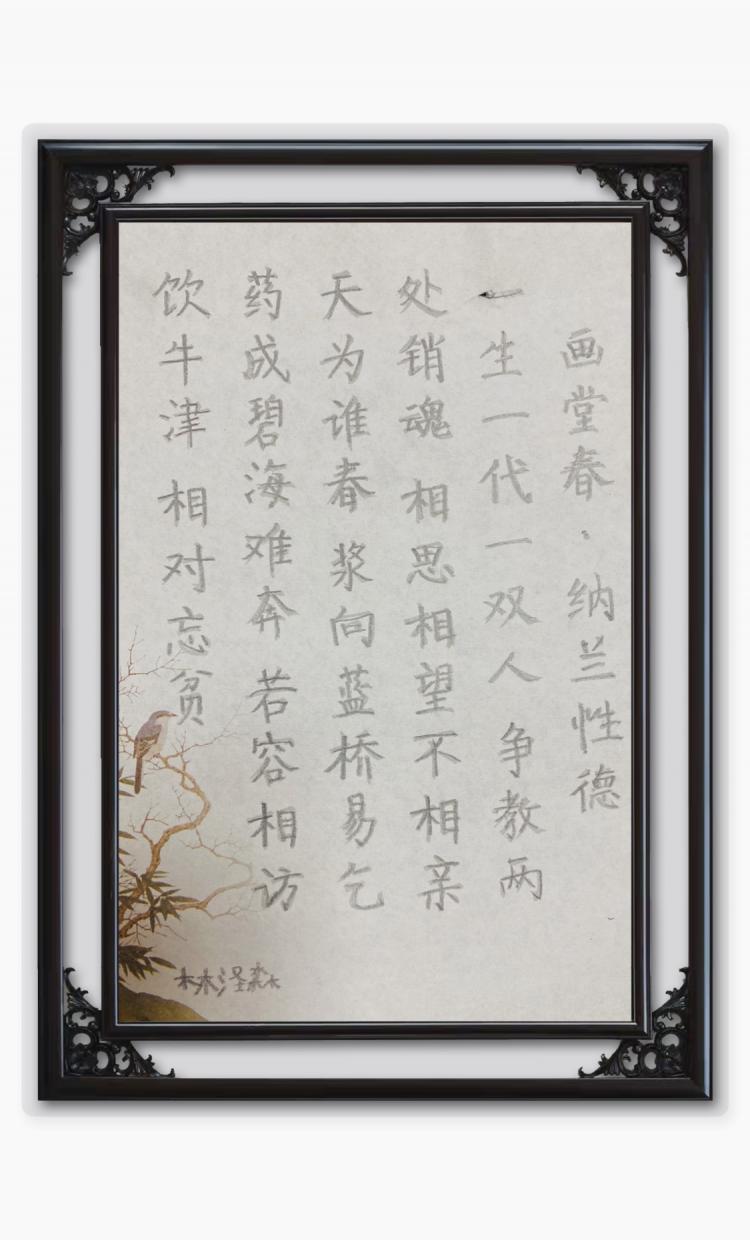 画堂春·纳兰性德
一生一代一双人 争教两
处销魂 相思相望不相亲
天为谁春 浆向蓝桥易乞
药成碧海难奔 若容相访
饮牛津 相对忘贫
林泽森